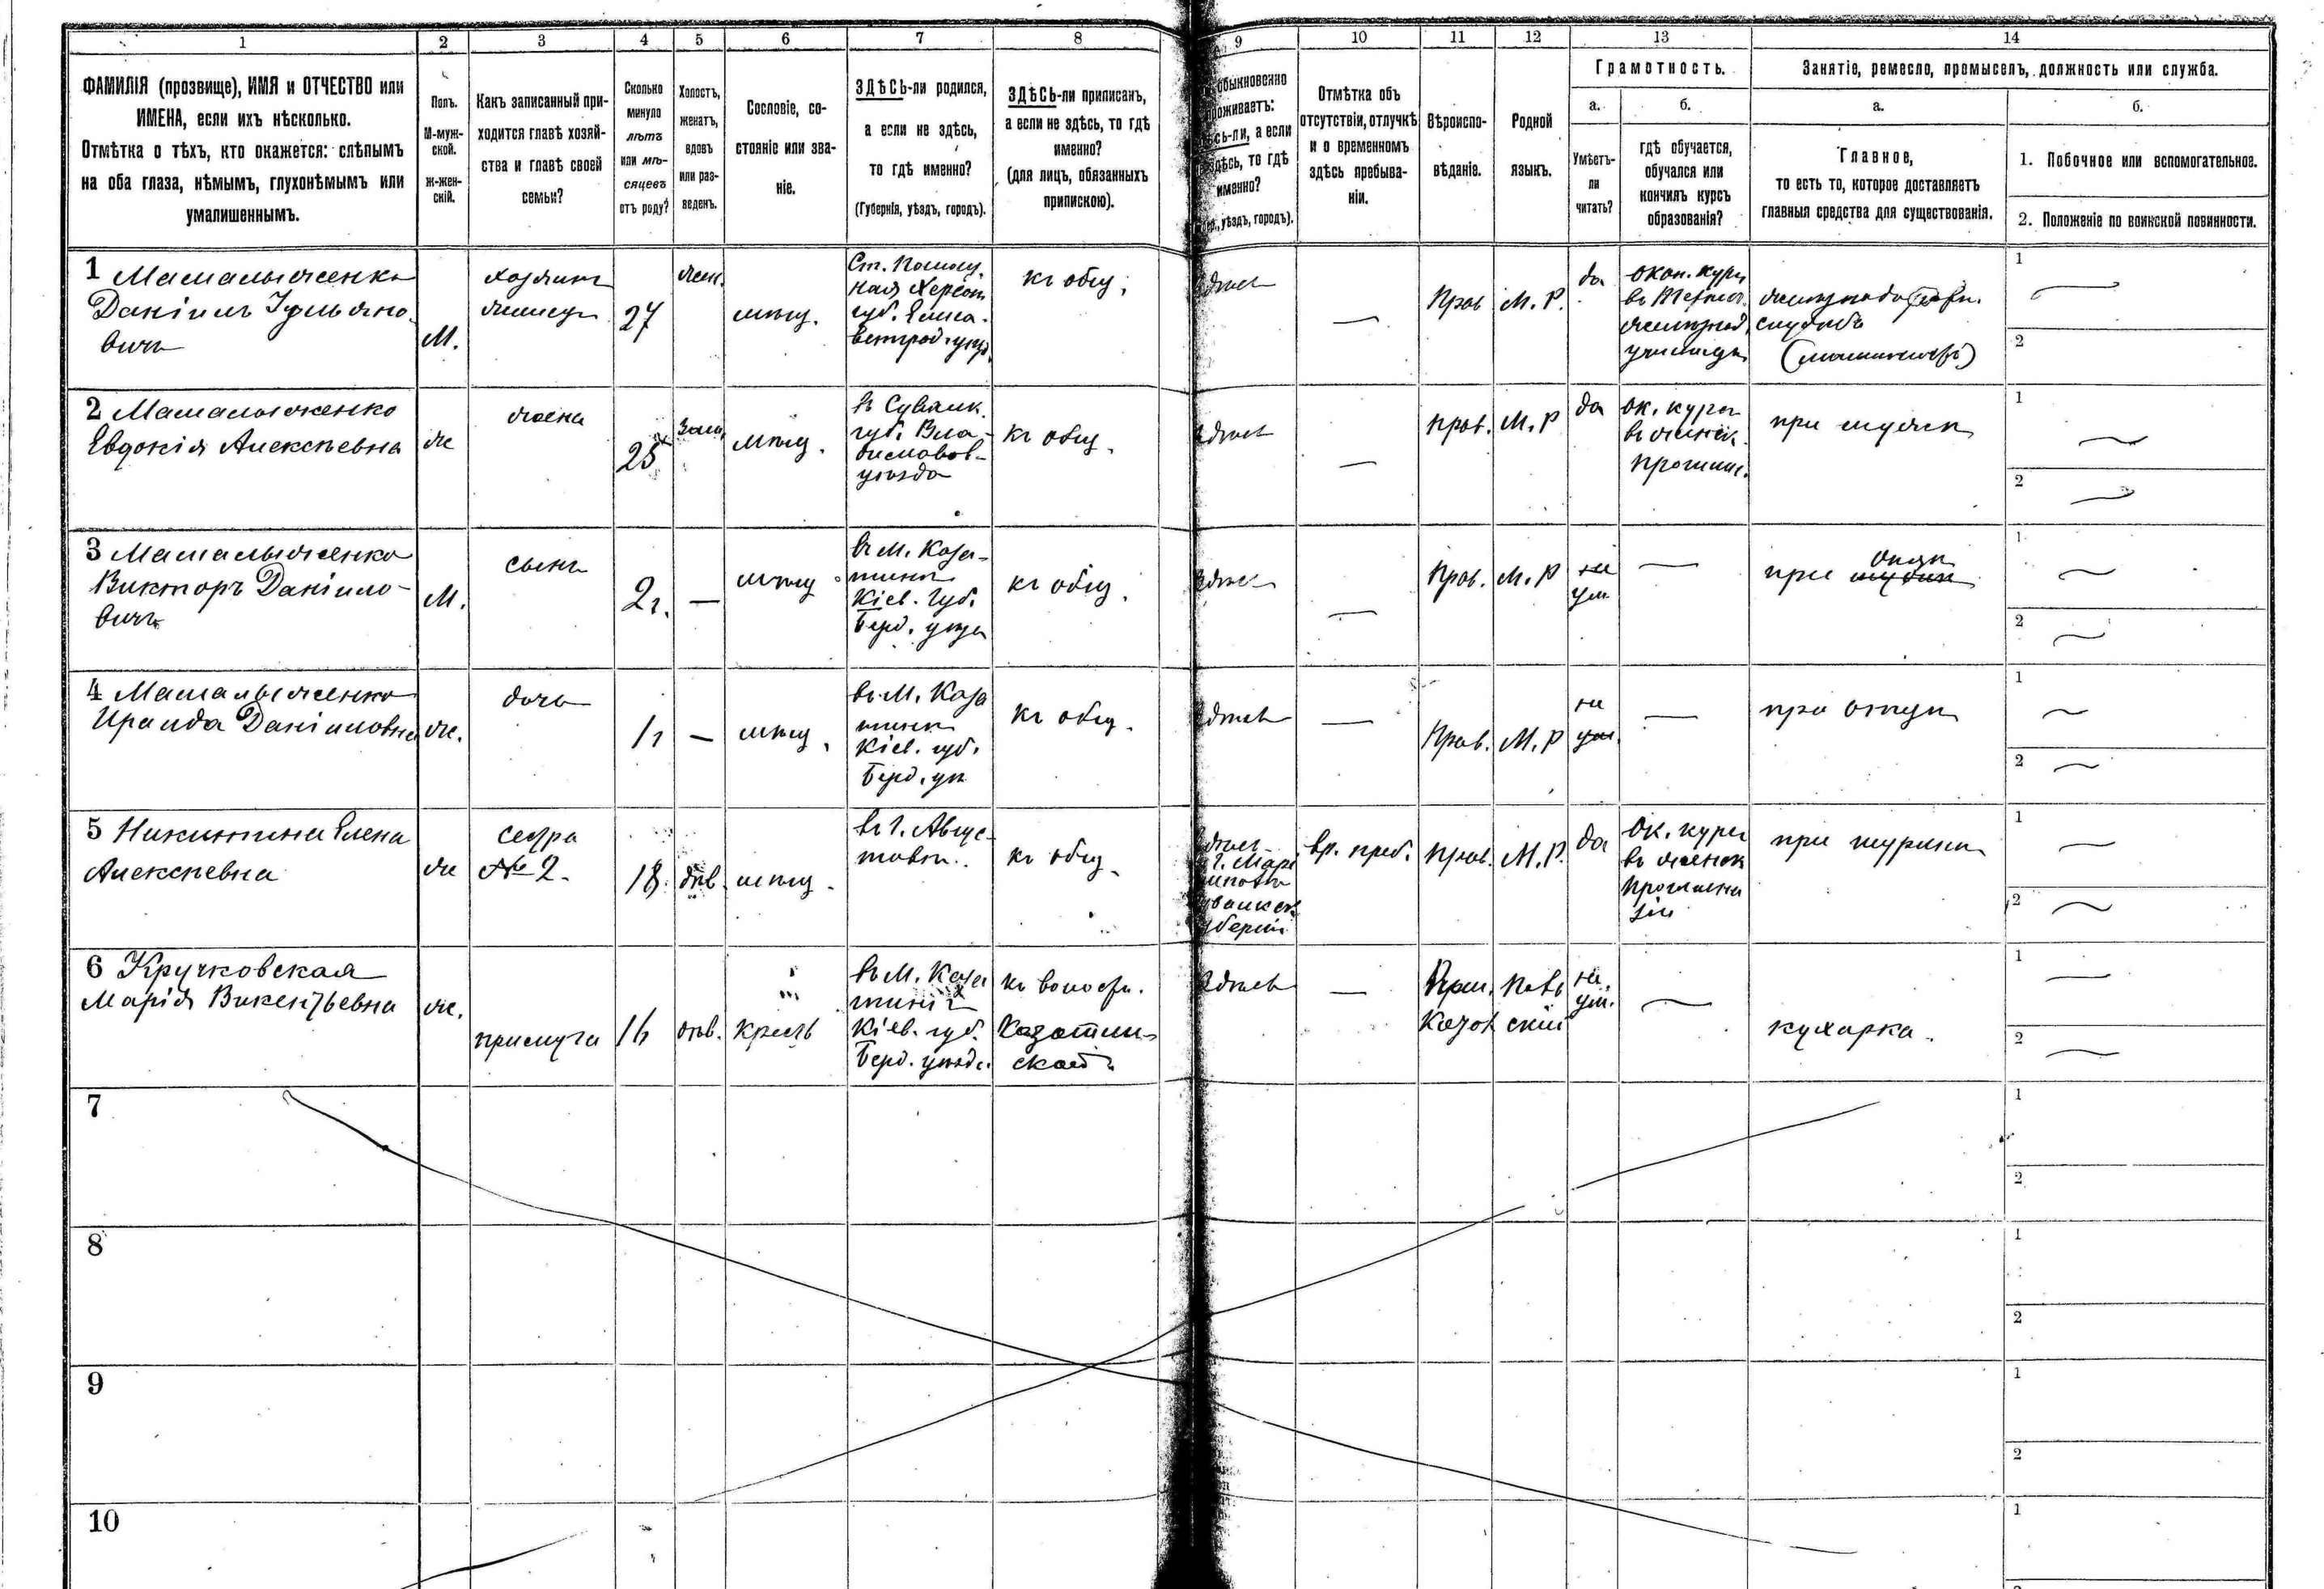 1 2 3 4 5 6 7 8 9 10 11 12 13 14
ФАМИЛІЯ (прозвище), ИМЯ и ОТЧЕСТВО или
ИМЕНА, если ихъ нѣсколько.
Отмѣтка о тѣхъ, кто окажется: слѣпымъ
на оба глаза, нѣмымъ, глухонѣмымъ или
умалишеннымъ.
Полъ.
М-муж-
ской.
Ж-жен-
скій.
Какъ записанный при-
ходится главѣ хозяй-
ства и главѣ своей
семьи?
Сколько
минуло
лѣтъ
или мѣ-
сяцевъ
отъ роду?
Холостъ,
женатъ,
вдовъ
или раз-
веденъ.
Сословіе, со-
стояніе или зва-
ніе.
ЗДѢСЬ-ли родился,
а если не здѣсь,
то гдѣ именно?
(Губернія, уѣздъ, городъ).
ЗДѢСЬ-ли приписанъ,
а если не здѣсь, то гдѣ
именно?
(для лицъ, обязанныхъ
припискою).
обыкновенно
проживаетъ:
здѣсь-ли, а если
не здѣсь, то гдѣ
именно?
уѣздъ, городъ).
Отмѣтка объ
отсутствіи, отлучкѣ
и о временномъ
здѣсь пребыва-
ніи.
Вѣроиспо-
вѣданіе.
Родной
языкъ.
Грамотность.
а. б.
Умѣетъ-
ли
читать?
гдѣ обучается,
обучался или
кончилъ курсъ
образованія?
Занятіе, ремесло, промыселъ, должность или служба.
а. б.
Главное,
то есть то, которое доставляетъ
главныя средства для существованія.
1. Побочное или вспомогательное.
2. Положеніе по воинской повинности.
1
Даніилъ Іульяно-
вичъ
М.
хозяинъ
27
жен.
мѣщ.
губ. Елиса-
ветград. уѣзд.
къ общ.
Здѣсь
—
Прав
М. Р.
да
окон. курсъ
училищѣ
службѣ
1
2
2
Евдокія Алексѣевна
ж
жена
25
зам.
мѣщ.
въ Сувалк.
губ. Вла-
уѣзда
къ общ.
Здѣсь
—
прав.
М. Р
да
ок. курсъ
въ женск.
прогимн.
при мужѣ
1
2
3
Викторъ Даніило-
вичъ
М.
сынъ
2 г.
—
мѣщ
въ М. Каза-
тинѣ
Кіев. губ.
Берд. уѣзд
къ общ.
Здѣсь
—
Прав.
М. Р
не
ум
—
при отцѣ
1
2
4
Ираида Даніиловна
ж.
дочь
1 г
—
мѣщ.
въ М. Каза
тинѣ
Кіев. губ.
Берд. уѣ
къ общ.
Здѣсь
—
Прав.
М. Р
не
ум.
—
при отцѣ
1
2
5 Никитина Елена
Алексѣевна
ж
сестра
№ 2.
18.
дѣв.
мѣщ.
въ г. Авгус-
товѣ.
къ общ.
вр. преб.
прав.
М. Р.
да
ок. курсъ
въ женск
прогимна
зіи
при шуринѣ
1
2
6 Кручковская
Марія Викентьевна
ж.
прислуга
16
дѣв.
крест
въ М. Каза
тинѣ
Кіев. губ.
Берд. уѣзд.
къ волости.
Казатин-
ской
Здѣсь
—
Рим.
Катол
Поль
скій
не
ум.
—
кухарка.
1
2
7
1
2
8
1
2
9
1
2
10
1